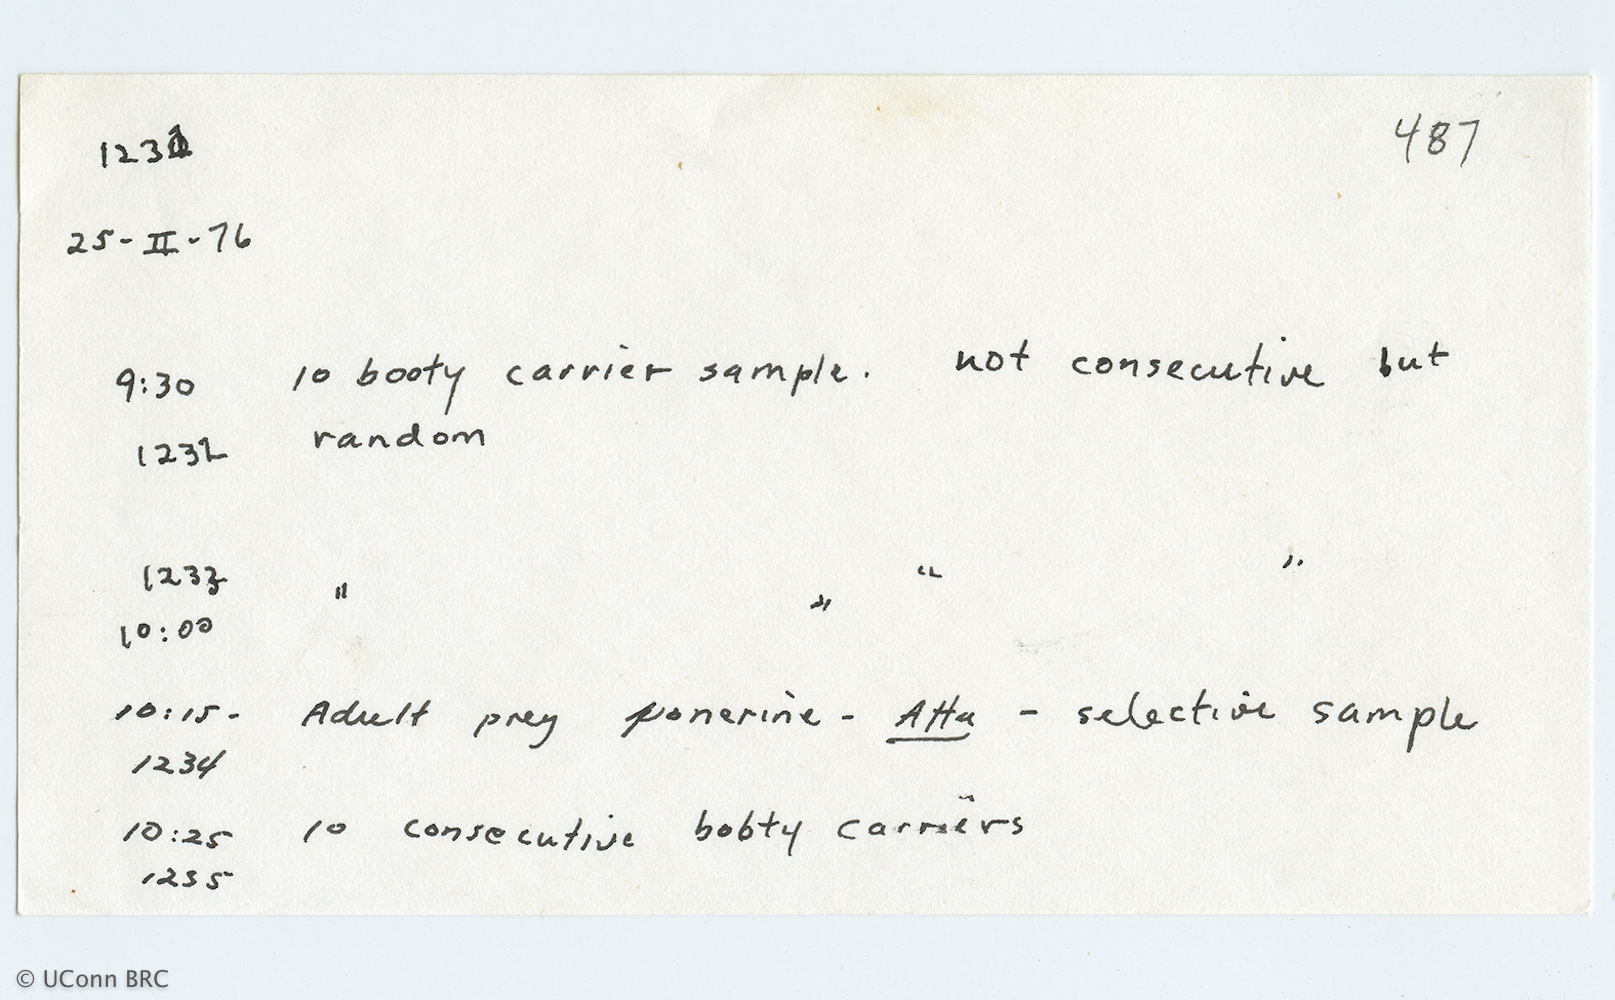 1231
487
25-II-76
9:30 10 booty carrier sample. not consecutive but
1232 random
1233 " " " "
10:00
10:15- Adult prey ponerine - Atta - selective sample
1234
10:25 10 consecutive booty carriers
1235
© UConn BRC